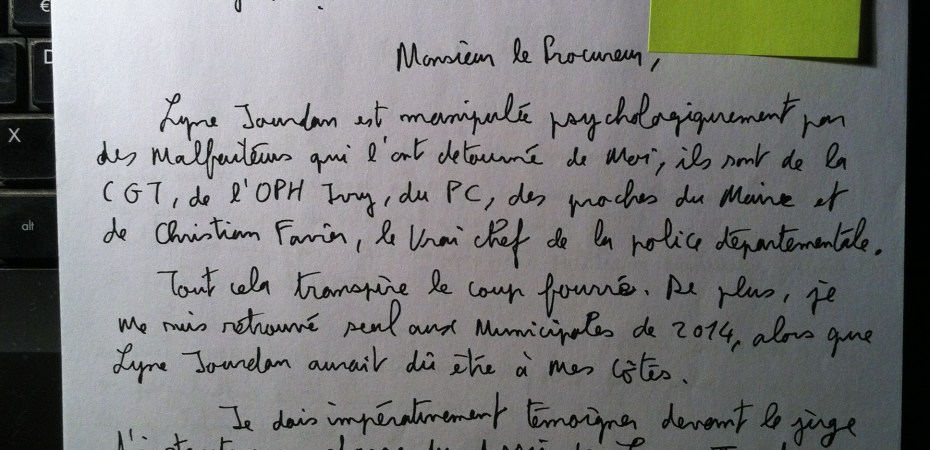 Monsieur le Procureur,
Lyne Jourdan est manipulée psychologiquement par
des Malfaiteurs qui l'ont detournée de Moi, ils sont de la
CGT, de l'OPH Ivry, du PC, des proches du Maire et
de Christian Favier, le Vrai chef de la police départementale.
Tout cela transpire le coup fourré. De plus, je
me suis retrouvé seul aux Municipales de 2014, alors que
Lyne Jourdan aurait dû être à mes côtés.
Je dois impérativement témoigner devant le juge
€
D
X
alt